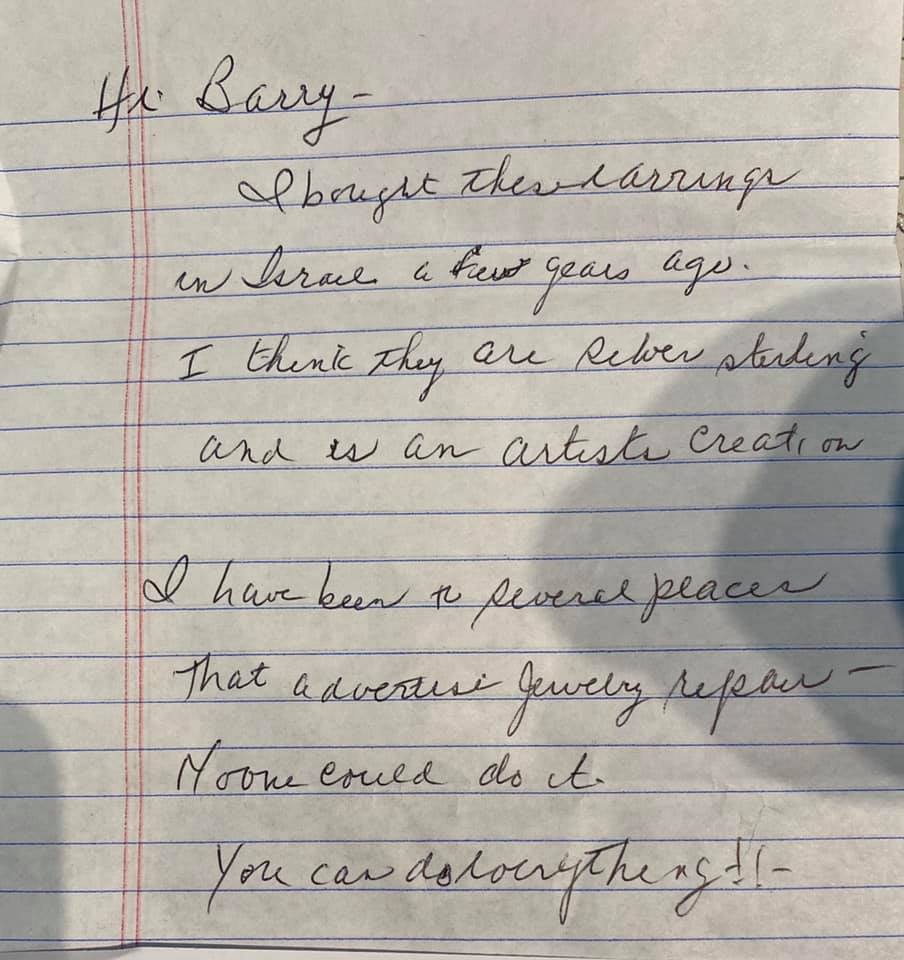 Hi Barry-
I bought these earrings
in Israel a few years ago.
I think they are silver sterling
and is an artists creation
I have been to several places
that advertise Jewelry repair -
Noone could do it.
You can do everything!!-